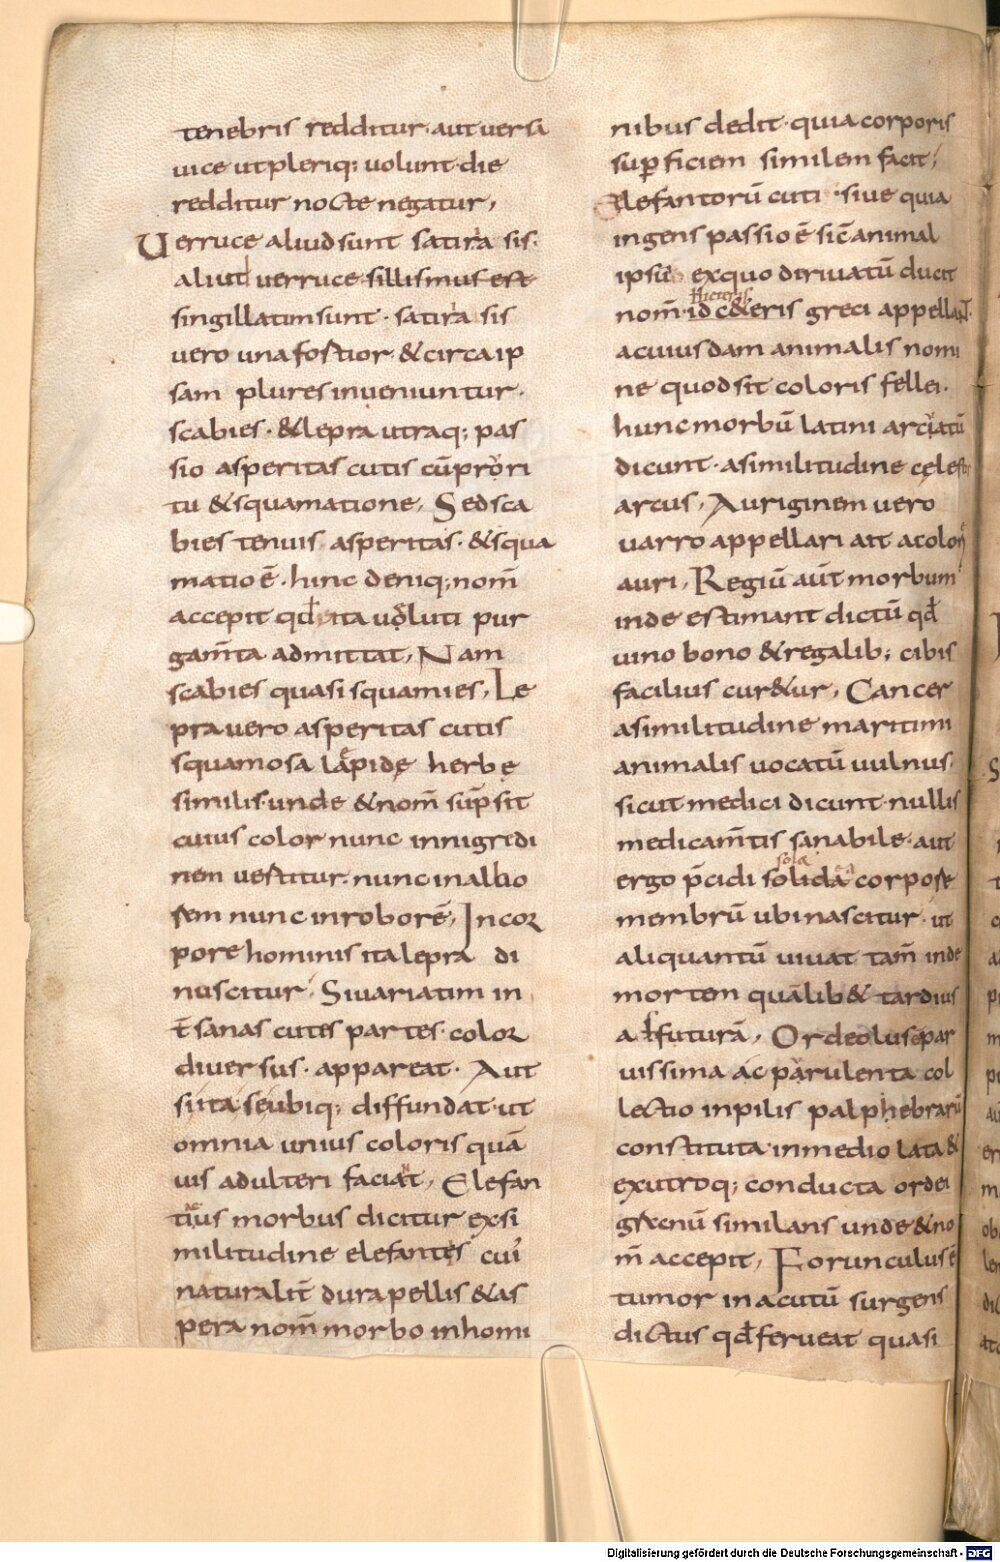 tenebris redditur· aut versa
vice ut pleriq; volunt· die
redditur nocte negatur,
Verruce aliud sunt satira sis·
aliud verruce· sillismus est
singillatim sunt· satira sis
vero una fortior· & circa ip
sam plures inveniuntur·
scabies· & lepra utraq; pas
sio asperitas cutis cū prori
tu & squamatione, Sed sca
bies tenuis asperitas· & squa
matio ē· hinc deniq; nom̄
accepit qđ ita voluti pur
gam̄ta admittat, Nam
scabies quasi squamies, Le
pra vero asperitas cutis
squamosa lapidę herbę
similis· unde & nom̄ sūpsit
cuius color nunc in nigredi
nem vertitur· nunc in albo
rem nunc in roborē, In cor
pore hominis ita lepra di
nuscitur, Si variatim in
t̄ sanas cutes partes· color
diversus· appareat· Aut
si ita se ubiq; diffundat· ut
omnia unius coloris quā
vis adulteri faciat, Elefan
tius morbus dicitur ex si
militudine elefantes cui
naturalit̄ dura pellis & as
pera nom̄ morbo in homi
nibus dedit· quia corporis
suꝑficiem similem facit,
Elefantorū cuti· sive quia
ingens passio ē sic̄ animal
ipsū ex quo dirivatū ducit
hicteris
nom̄· id c&eris greci appellaɴт·
a cuiusdam animalis nomi
ne quod sit coloris fellei·
hunc morbū latini arciatū
dicunt· a similitudine cęlestis
arcus, Auriginem vero
varro appellari ait a colore
auri, Regiū aūt morbum
inde estimant dictū qđ
vino bono & regalib; cibis
facilius cur&ur, Cancer
a similitudine maritimi
animalis vocatū vulnus·
sicut medici dicunt· nullis
medicam̄tis sanabile· aut
sola
ergo p̄cidi solida corpore
membrū ubi nascitur· ut
aliquantū vivat· tam̄ inde
mortem quālib& tardius
affuturā, Ordeolus ē par
vissima ac parulenta col
lectio in pilis palphebrarū
constituta· in medio lata &
ex utroq; conducta ordei
granū similans unde & no
m̄ accepit, Forunculus ē
tumor in acutū surgens
dictus qđ ferveat quasi
Digitalisierung gefördert durch die Deutsche Forschungsgemeinschaft - DFG